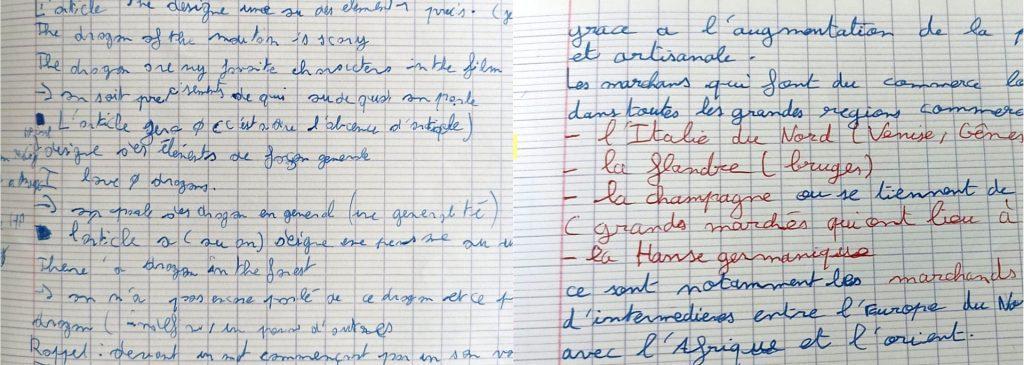 L'article The désigne un ou des elements précis.
The dragon of the mouton is scary
The dragon are my favorite characters in the film
→ on sait de qui ou de quoi on parle
L'article zero ø (c'est a dire l'absence d'article)
designe des éléments de façon generale
I love ø dragons.
→ on parle des dragon en general (une generalité)
L'article a (ou an) désigne une
There's a dragon in the forest
→ on n'a pas encore parlé de ce dragon et ce
dragon
Rappel : devant un mot commençant par un son
grace a l'augmentation de la
et artisanale.
Les marchans qui font du commerce
dans toutes les grandes regions commerc
- l'Italie du Nord (Venise, Gênes
- la flandre (bruges)
- la champagne ou se tiennent de
( grands marchés qui ont lieu à
- la Hanse germanique
ce sont notamment les marchands
d'intermedieres entre l'Europe du No
avec l'Afrique et l'orient.